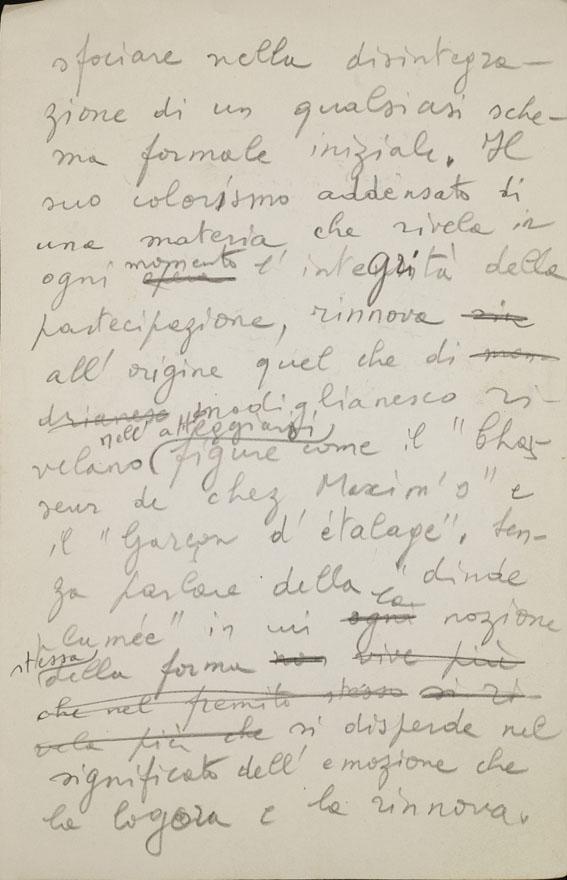 sfociare nella disintegra-
zione di un qualsiasi sche-
ma formale iniziale. Il
suo colorismo addensato di
una materia che rivela in
momento
ogni opera l'integrità della
partecipazione, rinnova sin
all'origine quel che di mon-
drianeso modiglianesco ri-
nell'atteggiarsi
velano figure come il "Chas-
seur de chez Maxim's" e
il "Garçon d'étalage", sen-
za parlare della "dinde
la
plumée" in cui ogni nozione
stessa
della forma non vive più
che nel fremito stesso si ri-
vela più che si disperde nel
significato dell'emozione che
la logora e la rinnova.